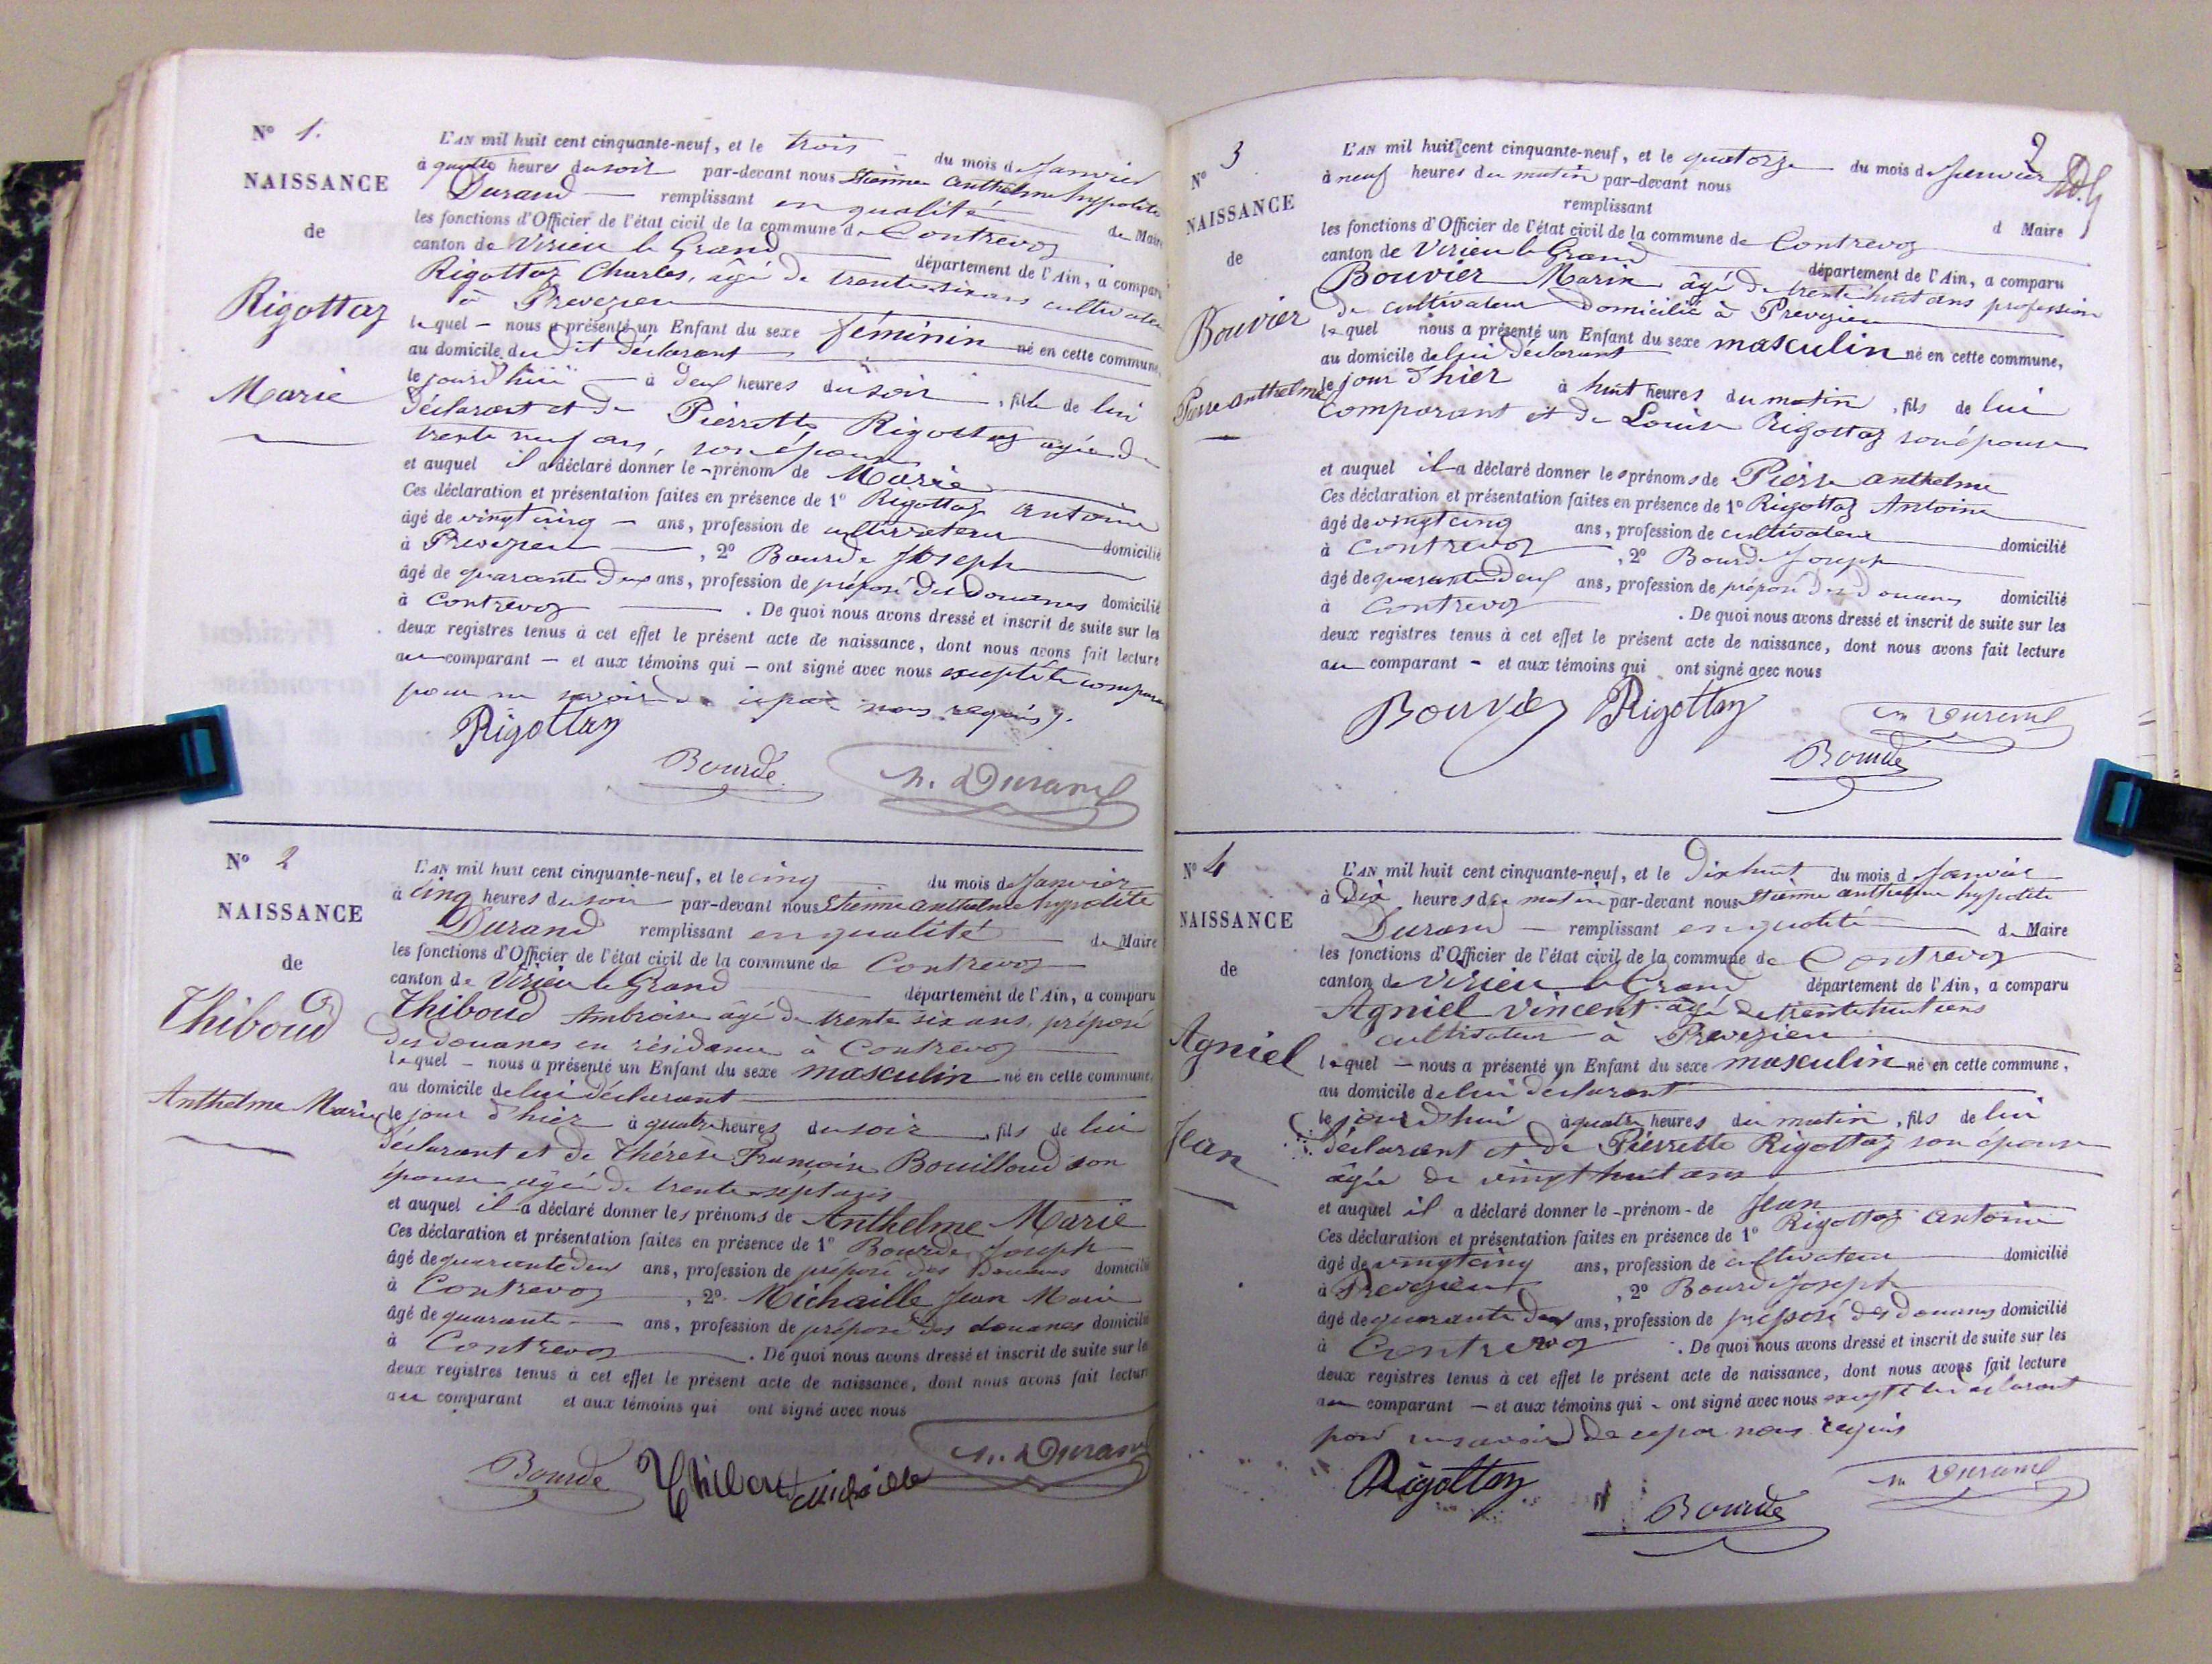 N° 1.
NAISSANCE
de
Rigottaz
Marie
L'AN mil huit cent cinquante-neuf, et le trois du mois de Janvier
à quatre heures du soir par-devant nous Etienne anthelme hypolite
Durand remplissant en qualité de Maire
les fonctions d'Officier de l'état civil de la commune de Contrevoz
canton de Virieu le Grand département de l'Ain, a comparu
Rigottaz Charles, âgé de trente six ans cultivateur
à Prevezieu
lequel nous a présenté un Enfant du sexe féminin né en cette commune,
au domicile du dit déclarant
le jourd'hui à deux heures du soir, fille de lui
déclarant et de Pierrette Rigottaz agée de
trente neuf ans, son épouse
et auquel il a déclaré donner le prénom de Marie
Ces déclaration et présentation faites en présence de 1° Rigottaz antoine
âgé de vingt cinq ans, profession de cultivateur domicilié
à Prevezieu, 2° Bourde Joseph
âgé de quarante deux ans, profession de préposé des douanes domicilié
à Contrevoz. De quoi nous avons dressé et inscrit de suite sur les
deux registres tenus à cet effet le présent acte de naissance, dont nous avons fait lecture
au comparant et aux témoins qui ont signé avec nous excepté le comparant
pour ne savoir de ce par nous requis.
Rigottaz
Bourde
h. Durand
N° 2
NAISSANCE
de
Thiboud
Anthelme Marie
L'AN mil huit cent cinquante-neuf, et le cinq du mois de Janvier
à cinq heures du soir par-devant nous Etienne anthelme hypolite
Durand remplissant en qualité de Maire
les fonctions d'Officier de l'état civil de la commune de Contrevoz
canton de Virieu le Grand département de l'Ain, a comparu
Thiboud Ambroise âgé de trente six ans, préposé
des douanes en résidence à Contrevoz
lequel nous a présenté un Enfant du sexe masculin né en cette commune,
au domicile de lui déclarant
le jour d'hier à quatre heures du soir, fils de lui
déclarant et de Thérèse Françoise Bouilloud son
épouse agée de trente sept ans
et auquel il a déclaré donner les prénoms de Anthelme Marie
Ces déclaration et présentation faites en présence de 1° Bourde Joseph
âgé de quarante deux ans, profession de préposé des douanes domicilié
à Contrevoz, 2° Michaille Jean Marie
âgé de quarante ans, profession de préposé des douanes domicilié
à Contrevoz. De quoi nous avons dressé et inscrit de suite sur les
deux registres tenus à cet effet le présent acte de naissance, dont nous avons fait lecture
au comparant et aux témoins qui ont signé avec nous
Bourde Michaille
h. Durand
2
N° 3
NAISSANCE
de
Bouvier
Pierre anthelme
L'AN mil huit cent cinquante-neuf, et le quatorze du mois de Janvier
à neuf heures du matin par-devant nous
remplissant
les fonctions d'Officier de l'état civil de la commune de Contrevoz d Maire
canton de Virieu le Grand département de l'Ain, a comparu
Bouvier Marin âgé de trente huit ans profession
de cultivateur domicilié à Prevezieu
lequel nous a présenté un Enfant du sexe masculin né en cette commune,
au domicile de lui déclarant
le jour d'hier à huit heures du matin, fils de lui
comparant et de Louise Rigottaz son épouse
et auquel il a déclaré donner les prénoms de Pierre anthelme
Ces déclaration et présentation faites en présence de 1° Rigottaz Antoine
âgé de vingt cinq ans, profession de cultivateur domicilié
à Contrevoz, 2° Bourde Joseph
âgé de quarante deux ans, profession de préposé des douanes domicilié
à Contrevoz. De quoi nous avons dressé et inscrit de suite sur les
deux registres tenus à cet effet le présent acte de naissance, dont nous avons fait lecture
au comparant - et aux témoins qui ont signé avec nous
Bouvier Rigottaz
Durand
Bourde
N° 4
NAISSANCE
de
Agniel
Jean
L'AN mil huit cent cinquante-neuf, et le Dix huit du mois d Janvier
à Dix heures du matin par-devant nous Etienne anthelme hypolite
Durand remplissant en qualité de Maire
les fonctions d'Officier de l'état civil de la commune de Contrevoz
canton de Virieu le Grand département de l'Ain, a comparu
Agniel Vincent âgé de trente huit ans
cultivateur à Prevezieu
lequel - nous a présenté un Enfant du sexe masculin né en cette commune,
au domicile de lui déclarant
le jourd'hui à quatre heures du matin, fils de lui
déclarant et de Pierrette Rigottaz son épouse
âgée de vingt huit ans
et auquel il a déclaré donner le prénom de Jean
Ces déclaration et présentation faites en présence de 1° Rigottaz antoine
âgé de vingt cinq ans, profession de cultivateur domicilié
à Prevezieu, 2° Bourde Joseph
âgé de quarante deux ans, profession de préposé des douanes domicilié
à Contrevoz. De quoi nous avons dressé et inscrit de suite sur les
deux registres tenus à cet effet le présent acte de naissance, dont nous avons fait lecture
au comparant - et aux témoins qui - ont signé avec nous excepté le déclarant
pour ne savoir de ce par nous requis
Rigottaz
Bourde
Durand